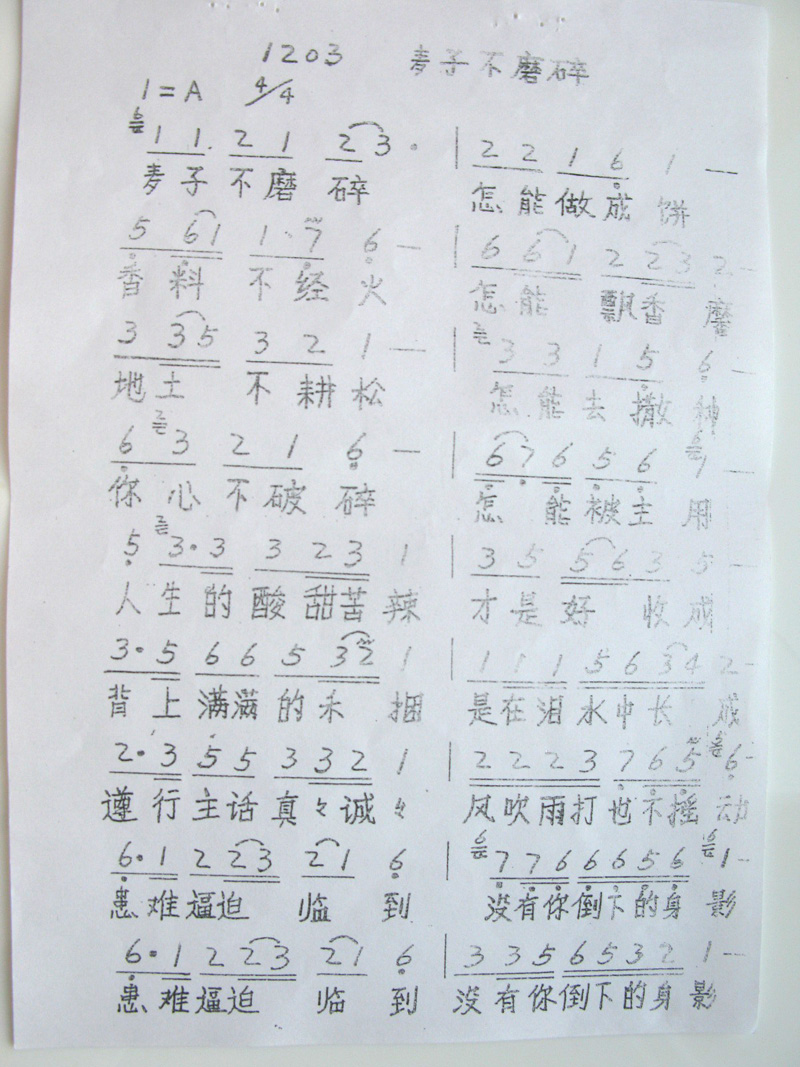 1203 麦子不磨碎
1=A 4/4
6 1 1. 2 1 2 3 · | 2 2 1 6 1 —
麦子不磨碎 怎能做成饼
5 6 1 1 · 7 6 — | 6 6 1 2 2 3 2 —
香料不经火 怎能飘香馨
3 3 5 3 2 1 — | 2 3 3 1 5 6 —
地土不耕松 怎能去撒种
6 2 3 2 1 6 — | 6 7 6 5 6 6 1 —
你心不破碎 怎能被主用
5 2 3 · 3 3 2 3 1 | 3 5 5 6 3 5 —
人生的酸甜苦辣 才是好收成
3 · 5 6 6 5 3 2 1 | 1 1 1 5 6 3 4 2 —
背上满满的禾捆 是在泪水中长成
2 · 3 5 5 3 3 2 1 | 2 2 2 3 7 6 5 6 —
遵行主话真々诚々 风吹雨打也不摇动
6 · 1 2 2 3 2 1 6 | 6 7 7 6 6 6 5 6 6 1 —
患难逼迫临到 没有你倒下的身影
6 · 1 2 2 3 2 1 6 | 3 3 5 6 5 3 2 1 —
患难逼迫临到 没有你倒下的身影